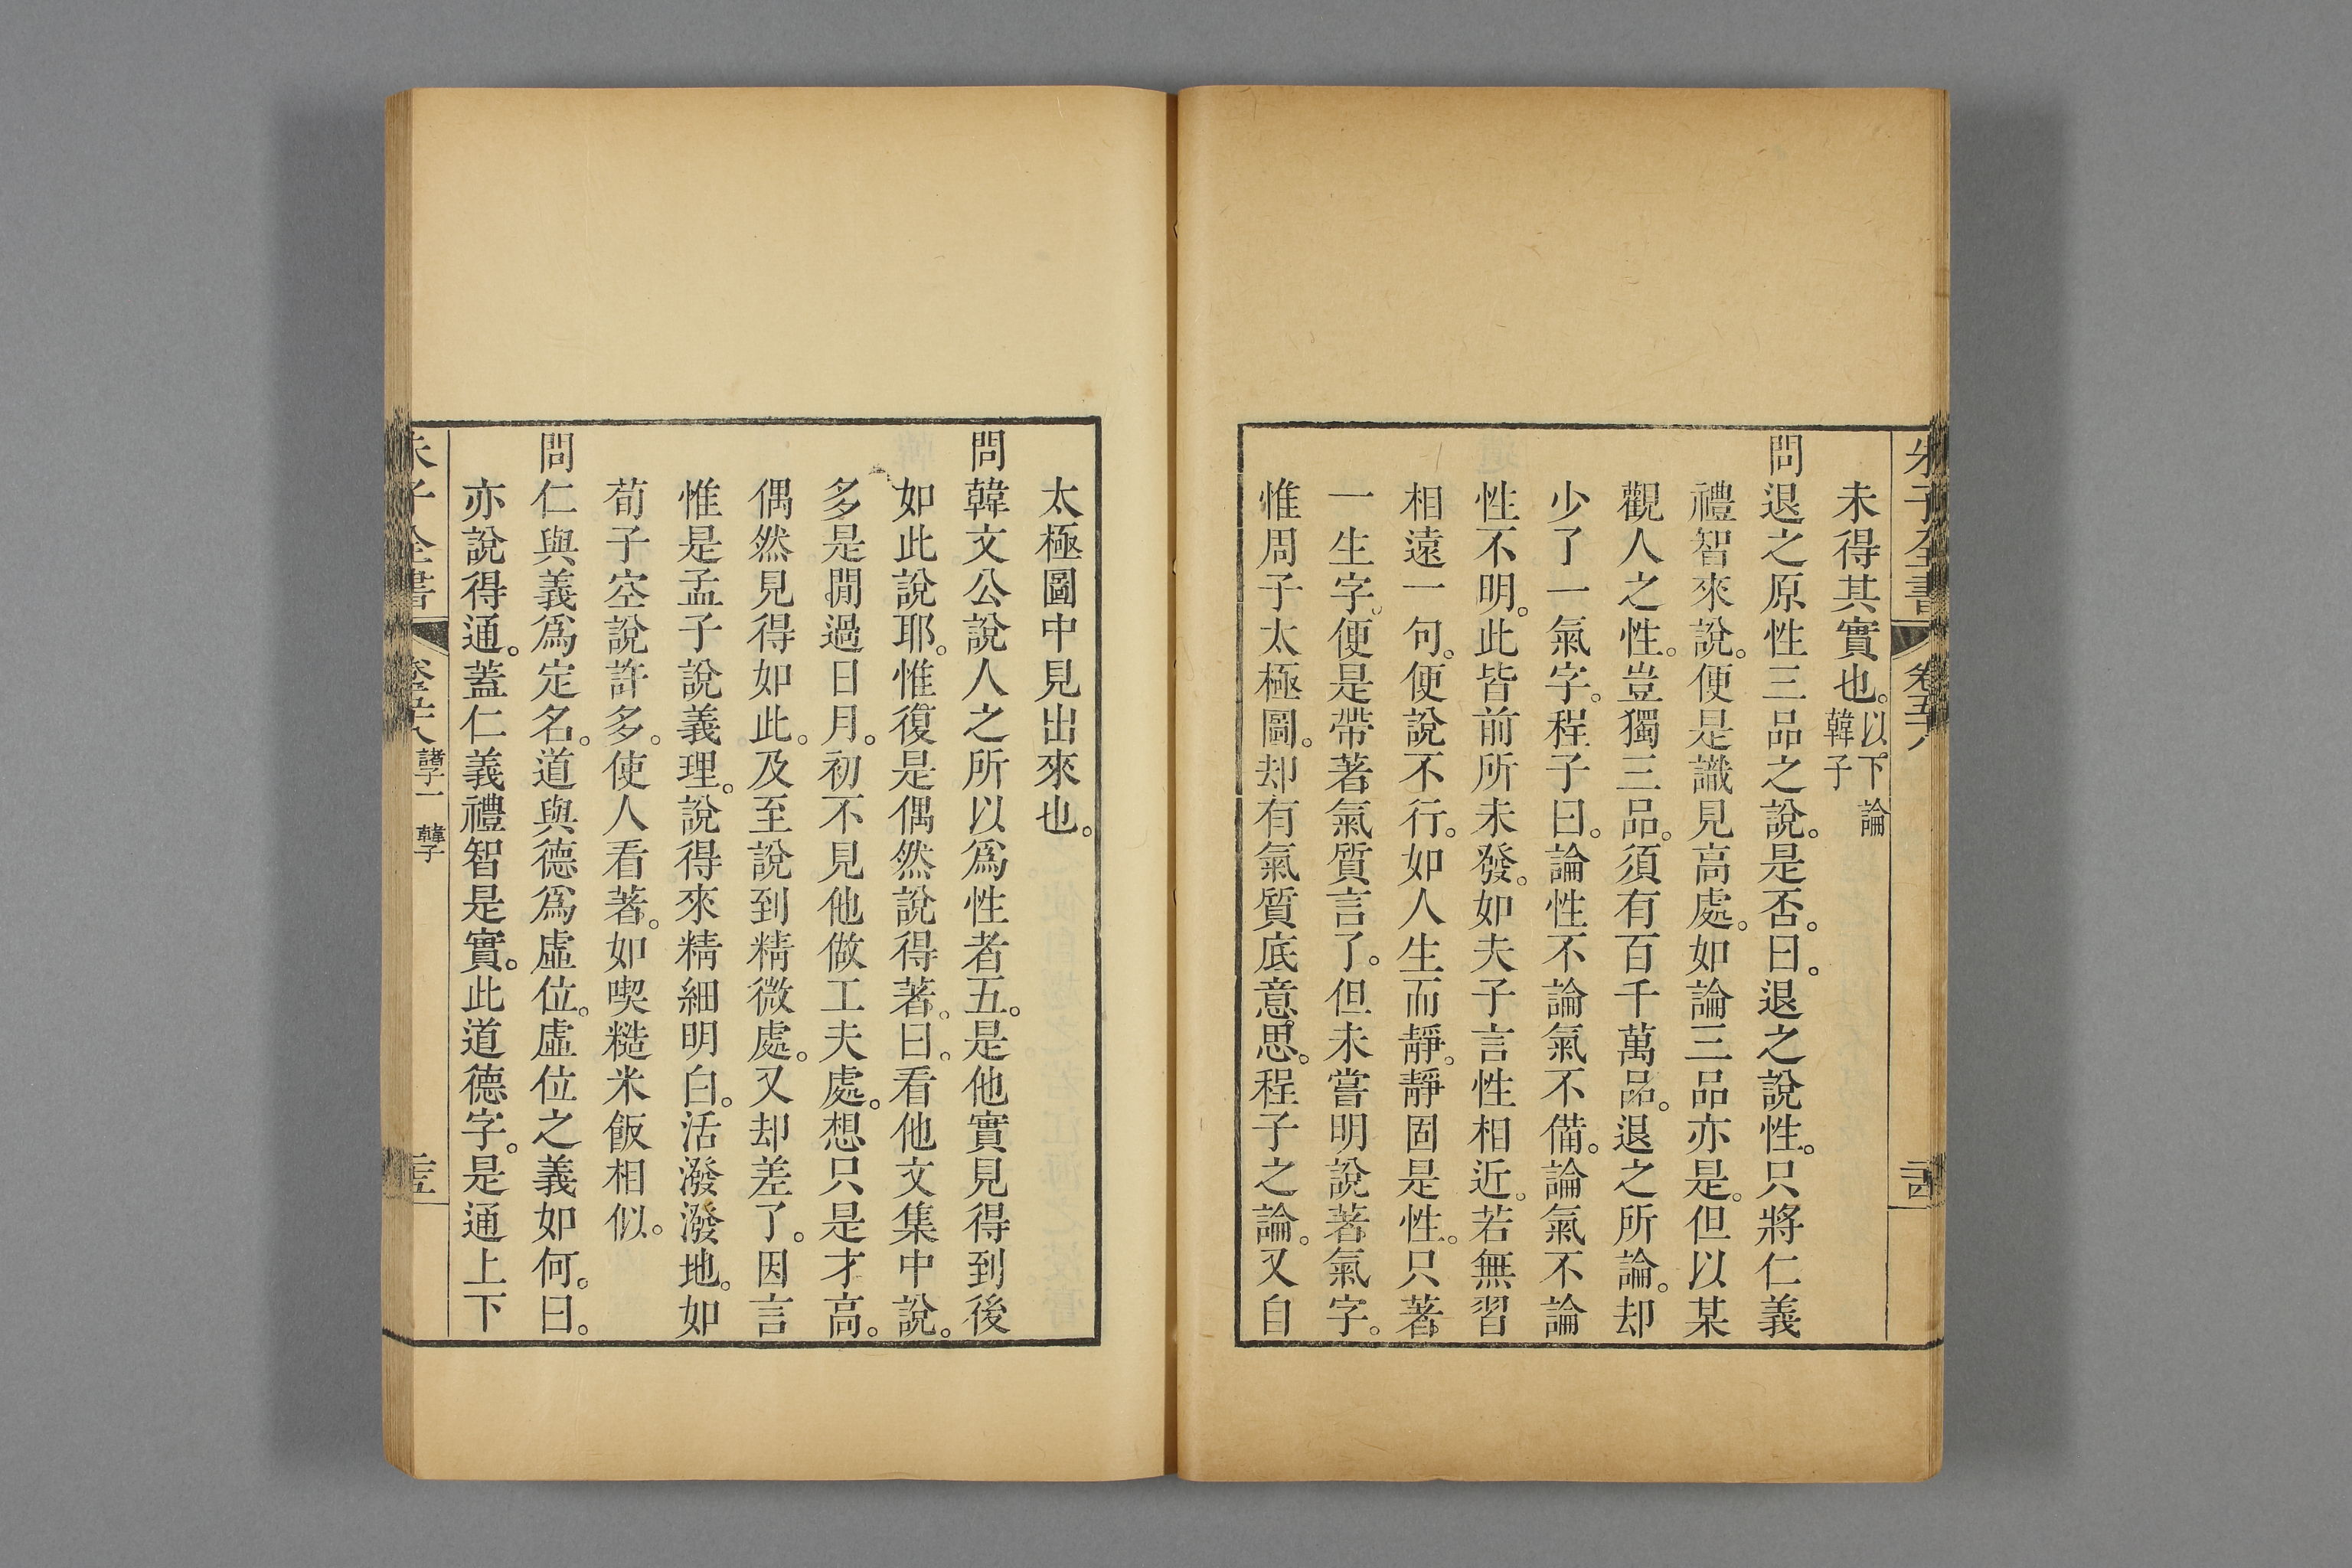 朱子全書 卷五十八 二十四
未得其實也。以下論韓子
問退之原性三品之說。是否。曰。退之說性。只將仁義
禮智來說。便是識見高處。如論三品亦是。但以某
觀人之性。豈獨三品。須有百千萬品。退之所論。却
少了一氣字。程子曰。論性不論氣不備。論氣不論
性不明。此皆前所未發。如夫子言性相近。若無習
相遠一句。便說不行。如人生而靜。靜固是性。只著
一生字。便是帶著氣質言了。但未嘗明說著氣字。
惟周子太極圖。却有氣質底意思。程子之論。又自
太極圖中見出來也。
問韓文公說人之所以爲性者五。是他實見得到後
如此說耶。惟復是偶然說得著。曰。看他文集中說。
多是閒過日月。初不見他做工夫處。想只是才高。
偶然見得如此。及至說到精微處。又却差了。因言
惟是孟子說義理。說得來精細明白。活潑潑地。如
荀子空說許多。使人看著。如喫糙米飯相似。
問仁與義爲定名。道與德爲虛位。虛位之義如何。曰。
亦說得通。蓋仁義禮智是實。此道德字。是通上下
朱子全書 卷五十八 諸子一 韓子 二十五